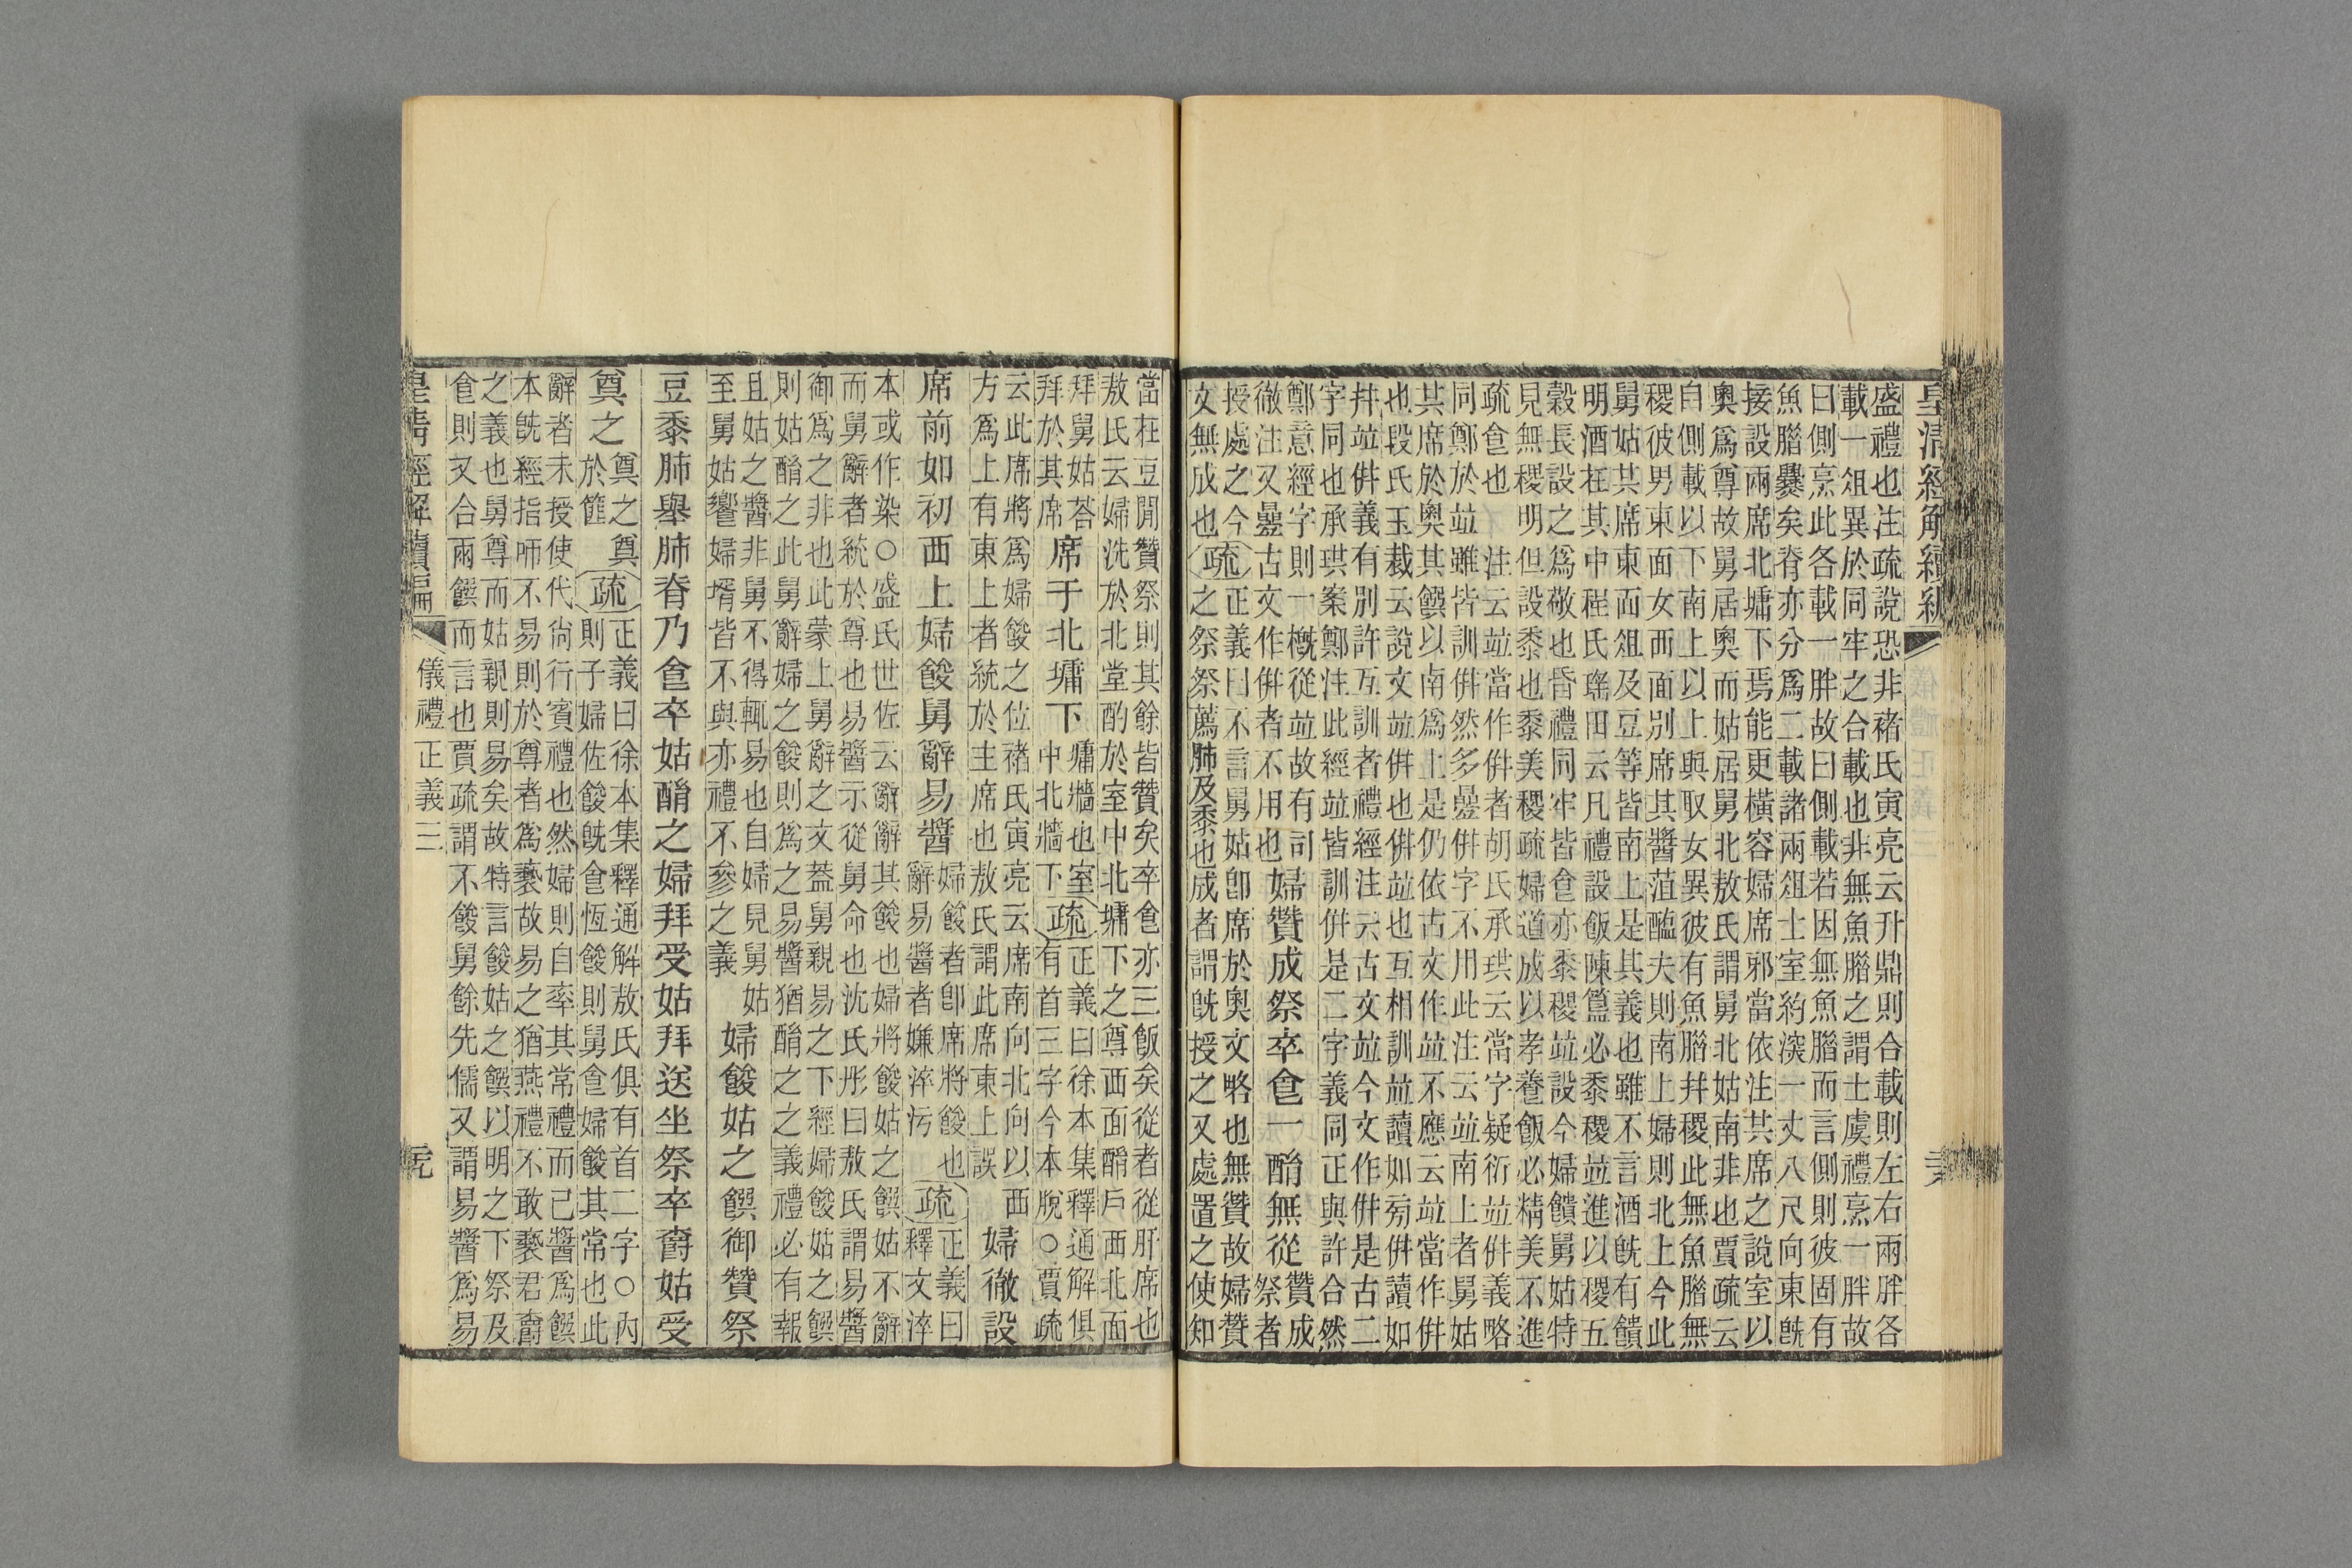 皇清經解續編
盛禮也注疏說恐非褚氏寅亮云升鼎則合載則左右兩胖各
載一俎異於同牢之合載也非無魚腊之謂士虞禮烹一胖故
曰側烹此各載一胖故曰側載若因無魚腊而言側則彼固有
魚腊爨矣脊亦分爲二載諸兩俎士室約深一丈八尺向東旣
接設兩席北墉下焉能更橫容婦席邪當依注其席之說室以
奧爲尊故舅居奧而姑居舅北敖氏謂舅北姑南非也賈疏云
自側載以下南上以上與取女異彼有魚腊幷稷此無魚腊無
稷彼男東面女西面別席其醬菹醢夫則南上婦則北上今此
舅姑共席東面俎及豆等皆南上是其義也雖不言酒旣有饋
明酒在其中程氏瑤田云凡禮設飯陳簋必黍稷並進以稷五
穀長設之爲敬也昏禮同牢皆食亦黍稷並設今婦饋舅姑特
見無稷明但設黍也黍美稷疏婦道成以孝養飯必精美不進
疏食也　注云並當作併者胡氏承珙云當字疑衍並併義略
同鄭於並雖皆訓併然多疊併字不用此注云並南上者舅姑
共席於奧其饌以南爲上是仍依古文作並不應云並當作併
也段氏玉裁云說文並併也併並也互相訓並讀如旁併讀如
幷並併義有別許互訓者禮經注云古文並今文作併是古二
字同也承珙案鄭注此經並皆訓併是二字義同正與許合然
鄭意經字則一槪從並故有司 婦贊成祭卒食一酳無從 贊成
徹注又疊古文作併者不用也 祭者
授處之今疏正義曰不言舅姑卽席於奧文略也無贊故婦贊
文無成也之祭祭薦肺及黍也成者謂旣授之又處置之使知
當在豆閒贊祭則其餘皆贊矣卒食亦三飯矣從者從肝席也
敖氏云婦洗於北堂酌於室中北墉下之尊西面酳戶西北面
拜舅姑荅 席于北墉下 墉牆也室 疏 正義曰徐本集釋通解俱
拜於其席 中北牆下 有首三字今本脫○賈疏
云此席將爲婦餕之位褚氏寅亮云席南向北向以西 婦徹設
方爲上有東上者統於主席也敖氏謂此席東上誤
席前如初西上婦餕舅辭易醬 婦餕者卽席將餕也 疏 正義曰
辭易醬者嫌淬污 釋文淬
本或作染○盛氏世佐云辭辭其餕也婦將餕姑之饌姑不辭
而舅辭者統於尊也易醬示從舅命也沈氏彤曰敖氏謂易醬
御爲之非也此蒙上舅辭之文葢舅親易之下經婦餕姑之饌
則姑酳之此舅辭婦之餕則爲之易醬猶酳之之義禮必有報
且姑之醬非舅不得輒易也自婦見舅姑 婦餕姑之饌御贊祭
至舅姑饗婦壻皆不與亦禮不參之義
豆黍肺舉肺脊乃食卒姑酳之婦拜受姑拜送坐祭卒爵姑受
奠之 奠之奠 疏 正義曰徐本集釋通解敖氏俱有首二字○內
於篚 則子婦佐餕旣食恆餕則舅食婦餕其常也此
辭者未授使代尙行賓禮也然婦則自率其常禮而已醬爲饌
本旣經指師不易則於尊者爲褻故易之猶燕禮不敢褻君爵
之義也舅尊而姑親則易矣故特言餕姑之饌以明之下祭及
食則又合兩饌而言也賈疏謂不餕舅餘先儒又謂易醬爲易
皇淸經解續編 儀禮正義三